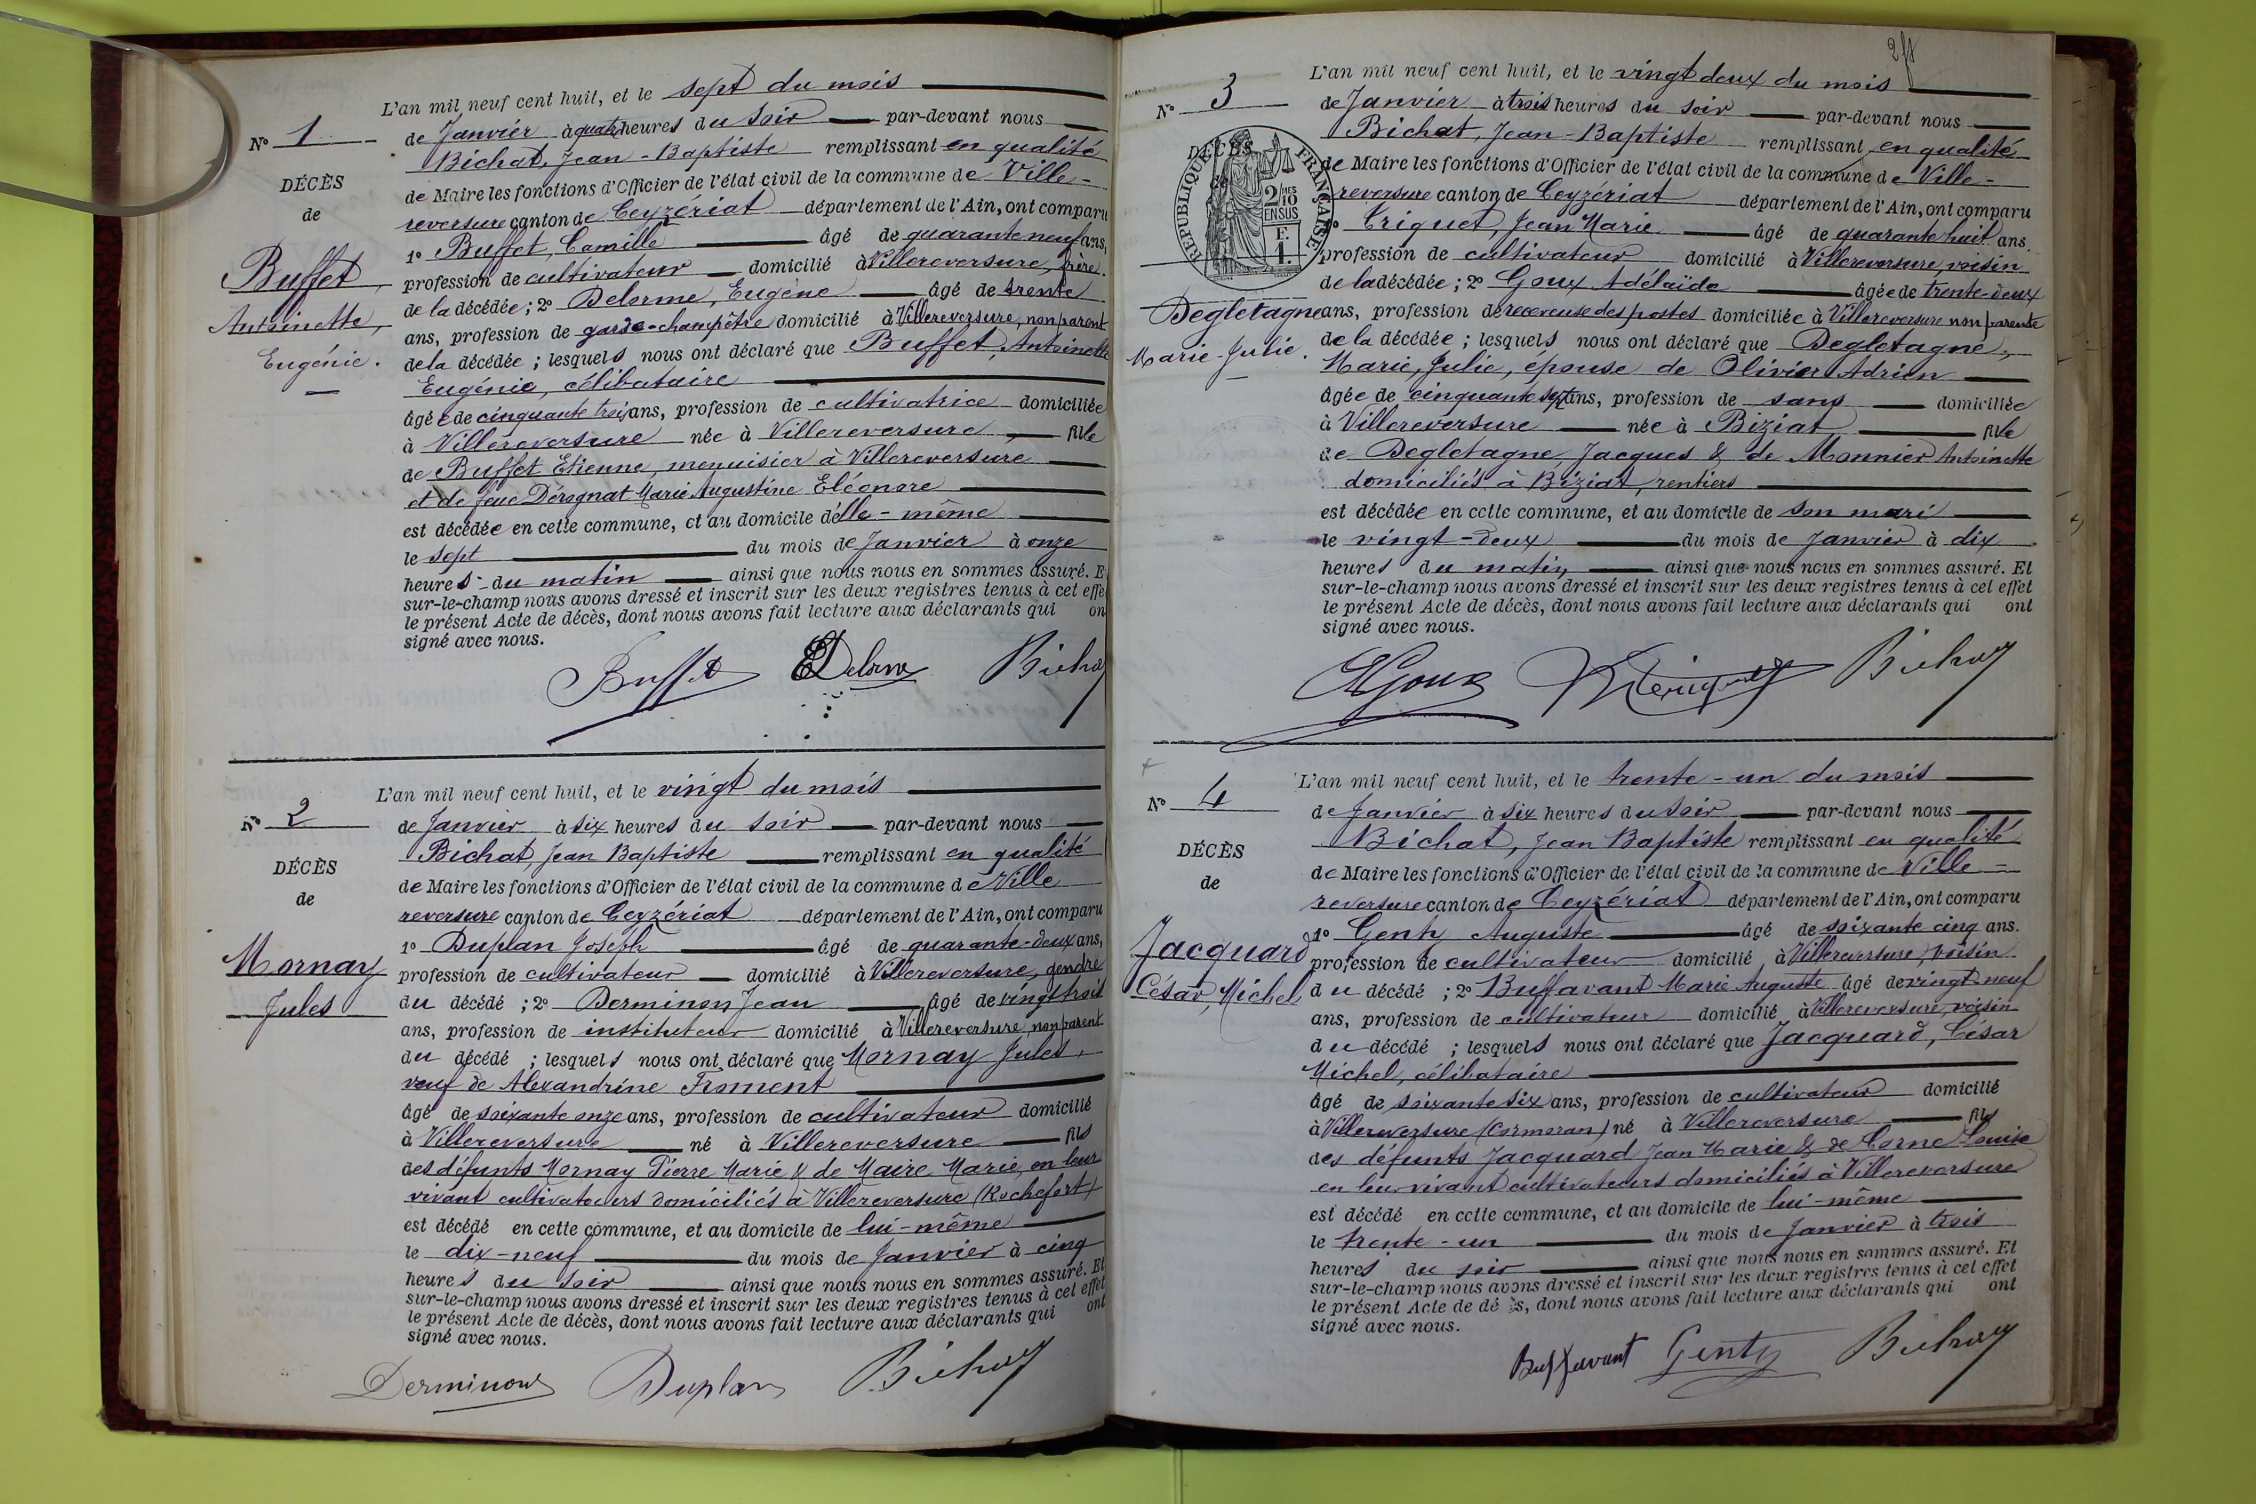 L'an mil neuf cent huit, et le sept du mois
N° 1
de Janvier à quatre heures du soir par-devant nous
Bichat, Jean-Baptiste remplissant en qualité
DÉCÈS
de Maire les fonctions d'Officier de l'état civil de la commune de Ville-
de
reversure canton de Ceyzériat département de l'Ain, ont comparu
1° Buffet, Camille âgé de quarante neuf ans,
Buffet
profession de cultivateur domicilié à Villereversure, frère
de la décédée; 2° Delorme, Eugène âgé de trente
Antoinette,
ans, profession de garde-champêtre domicilié à Villereversure, non parent
Eugénie.
de la décédée; lesquels nous ont déclaré que Buffet, Antoinette
Eugénie, célibataire
âgée de cinquante trois ans, profession de cultivatrice domiciliée
à Villereversure née à Villereversure, fille
de Buffet Etienne, menuisier à Villereversure
et de feue Dérognat Marie Augustine Eléonore
est décédée en cette commune, et au domicile d'elle-même
le sept du mois de Janvier à onze
heures du matin ainsi que nous nous en sommes assuré. E
sur-le-champ nous avons dressé et inscrit sur les deux registres tenus à cet effe
le présent Acte de décès, dont nous avons fait lecture aux déclarants qui on
signé avec nous.
Buffet EDelorme Bichat
L'an mil neuf cent huit, et le vingt du mois
N° 2
de Janvier à six heures du soir par-devant nous
Bichat, Jean Baptiste remplissant en qualité
DÉCÈS
de Maire les fonctions d'Officier de l'état civil de la commune de Ville
de
reversure canton de Ceyzériat département de l'Ain, ont comparu
1° Duplan Joseph âgé de quarante-deux ans,
Mornay
profession de cultivateur domicilié à Villereversure, gendre
Jules
du décédé; 2° Derminon, Jean âgé de vingt trois
ans, profession de instituteur domicilié à Villereversure, non parent
du décédé; lesquels nous ont déclaré que Mornay Jules,
veuf de Alexandrine Froment
âgé de soixante onze ans, profession de cultivateur domicilié
à Villereversure né à Villereversure fils
des défunts Mornay Pierre Marie & de Maire Marie, en leur
vivant cultivateurs domiciliés à Villereversure (Rochefort)
est décédé en cette commune, et au domicile de lui-même
le dix-neuf du mois de Janvier à cinq
heures du soir ainsi que nous nous en sommes assuré. Et
sur-le-champ nous avons dressé et inscrit sur les deux registres tenus à cet effet
le présent Acte de décès, dont nous avons fait lecture aux déclarants qui ont
signé avec nous.
Derminon Duplan Bichat
L'an mil neuf cent huit, et le vingt deux du mois
N° 3
de Janvier à trois heures du soir par-devant nous
Bichat, Jean-Baptiste remplissant en qualité
DÉCÈS
RÉPUBLIQUE FRANÇAISE
2/10 MES EN SUS
E. 1.
de Maire les fonctions d'Officier de l'état civil de la commune de Ville-
reversure canton de Ceyzériat département de l'Ain, ont comparu
1° Triquet, Jean Marie âgé de quarante huit ans.
profession de cultivateur domicilié à Villereversure, voisin
de la décédée; 2° Goux Adélaïde âgée de trente-deux
Degletagne
ans, profession de receveuse des postes domiciliée à Villereversure non parente
Marie-Julie.
de la décédée; lesquels nous ont déclaré que Degletagne,
Marie, Julie, épouse de Olivier Adrien
âgée de cinquante sept ans, profession de sans domiciliée
à Villereversure née à Biziat fille
de Degletagne Jacques & de Monnier Antoinette
domiciliés à Biziat, rentiers
est décédée en cette commune, et au domicile de son mari
le vingt-deux du mois de Janvier à dix
heures du matin ainsi que nous nous en sommes assuré. Et
sur-le-champ nous avons dressé et inscrit sur les deux registres tenus à cet effet
le présent Acte de décès, dont nous avons fait lecture aux déclarants qui ont
signé avec nous.
AGoux Bichat
L'an mil neuf cent huit, et le trente-un du mois
N° 4
de Janvier à six heures du soir par-devant nous
Bichat, Jean Baptiste remplissant en qualité
DÉCÈS
de Maire les fonctions d'Officier de l'état civil de la commune de Ville-
de
reversure canton de Ceyzériat département de l'Ain, ont comparu
1° Genty Auguste âgé de soixante cinq ans.
Jacquard
profession de cultivateur domicilié à Villereversure, voisin
César, Michel
du décédé; 2° Buffavant Marie Auguste âgé de vingt-neuf
ans, profession de cultivateur domicilié à Villereversure, voisin
du décédé; lesquels nous ont déclaré que Jacquard, César
Michel, célibataire
âgé de soixante six ans, profession de cultivateur domicilié
à Villereversure (Cormoran) né à Villereversure fils
des défunts Jacquard Jean Marie & de Corne Louise
en leur vivant cultivateurs domiciliés à Villereversure
est décédé en cette commune, et au domicile de lui-même
le trente-un du mois de Janvier à trois
heures du soir ainsi que nous nous en sommes assuré. Et
sur-le-champ nous avons dressé et inscrit sur les deux registres tenus à cet effet
le présent Acte de dé ès, dont nous avons fait lecture aux déclarants qui ont
signé avec nous.
Buffavant Genty Bichat